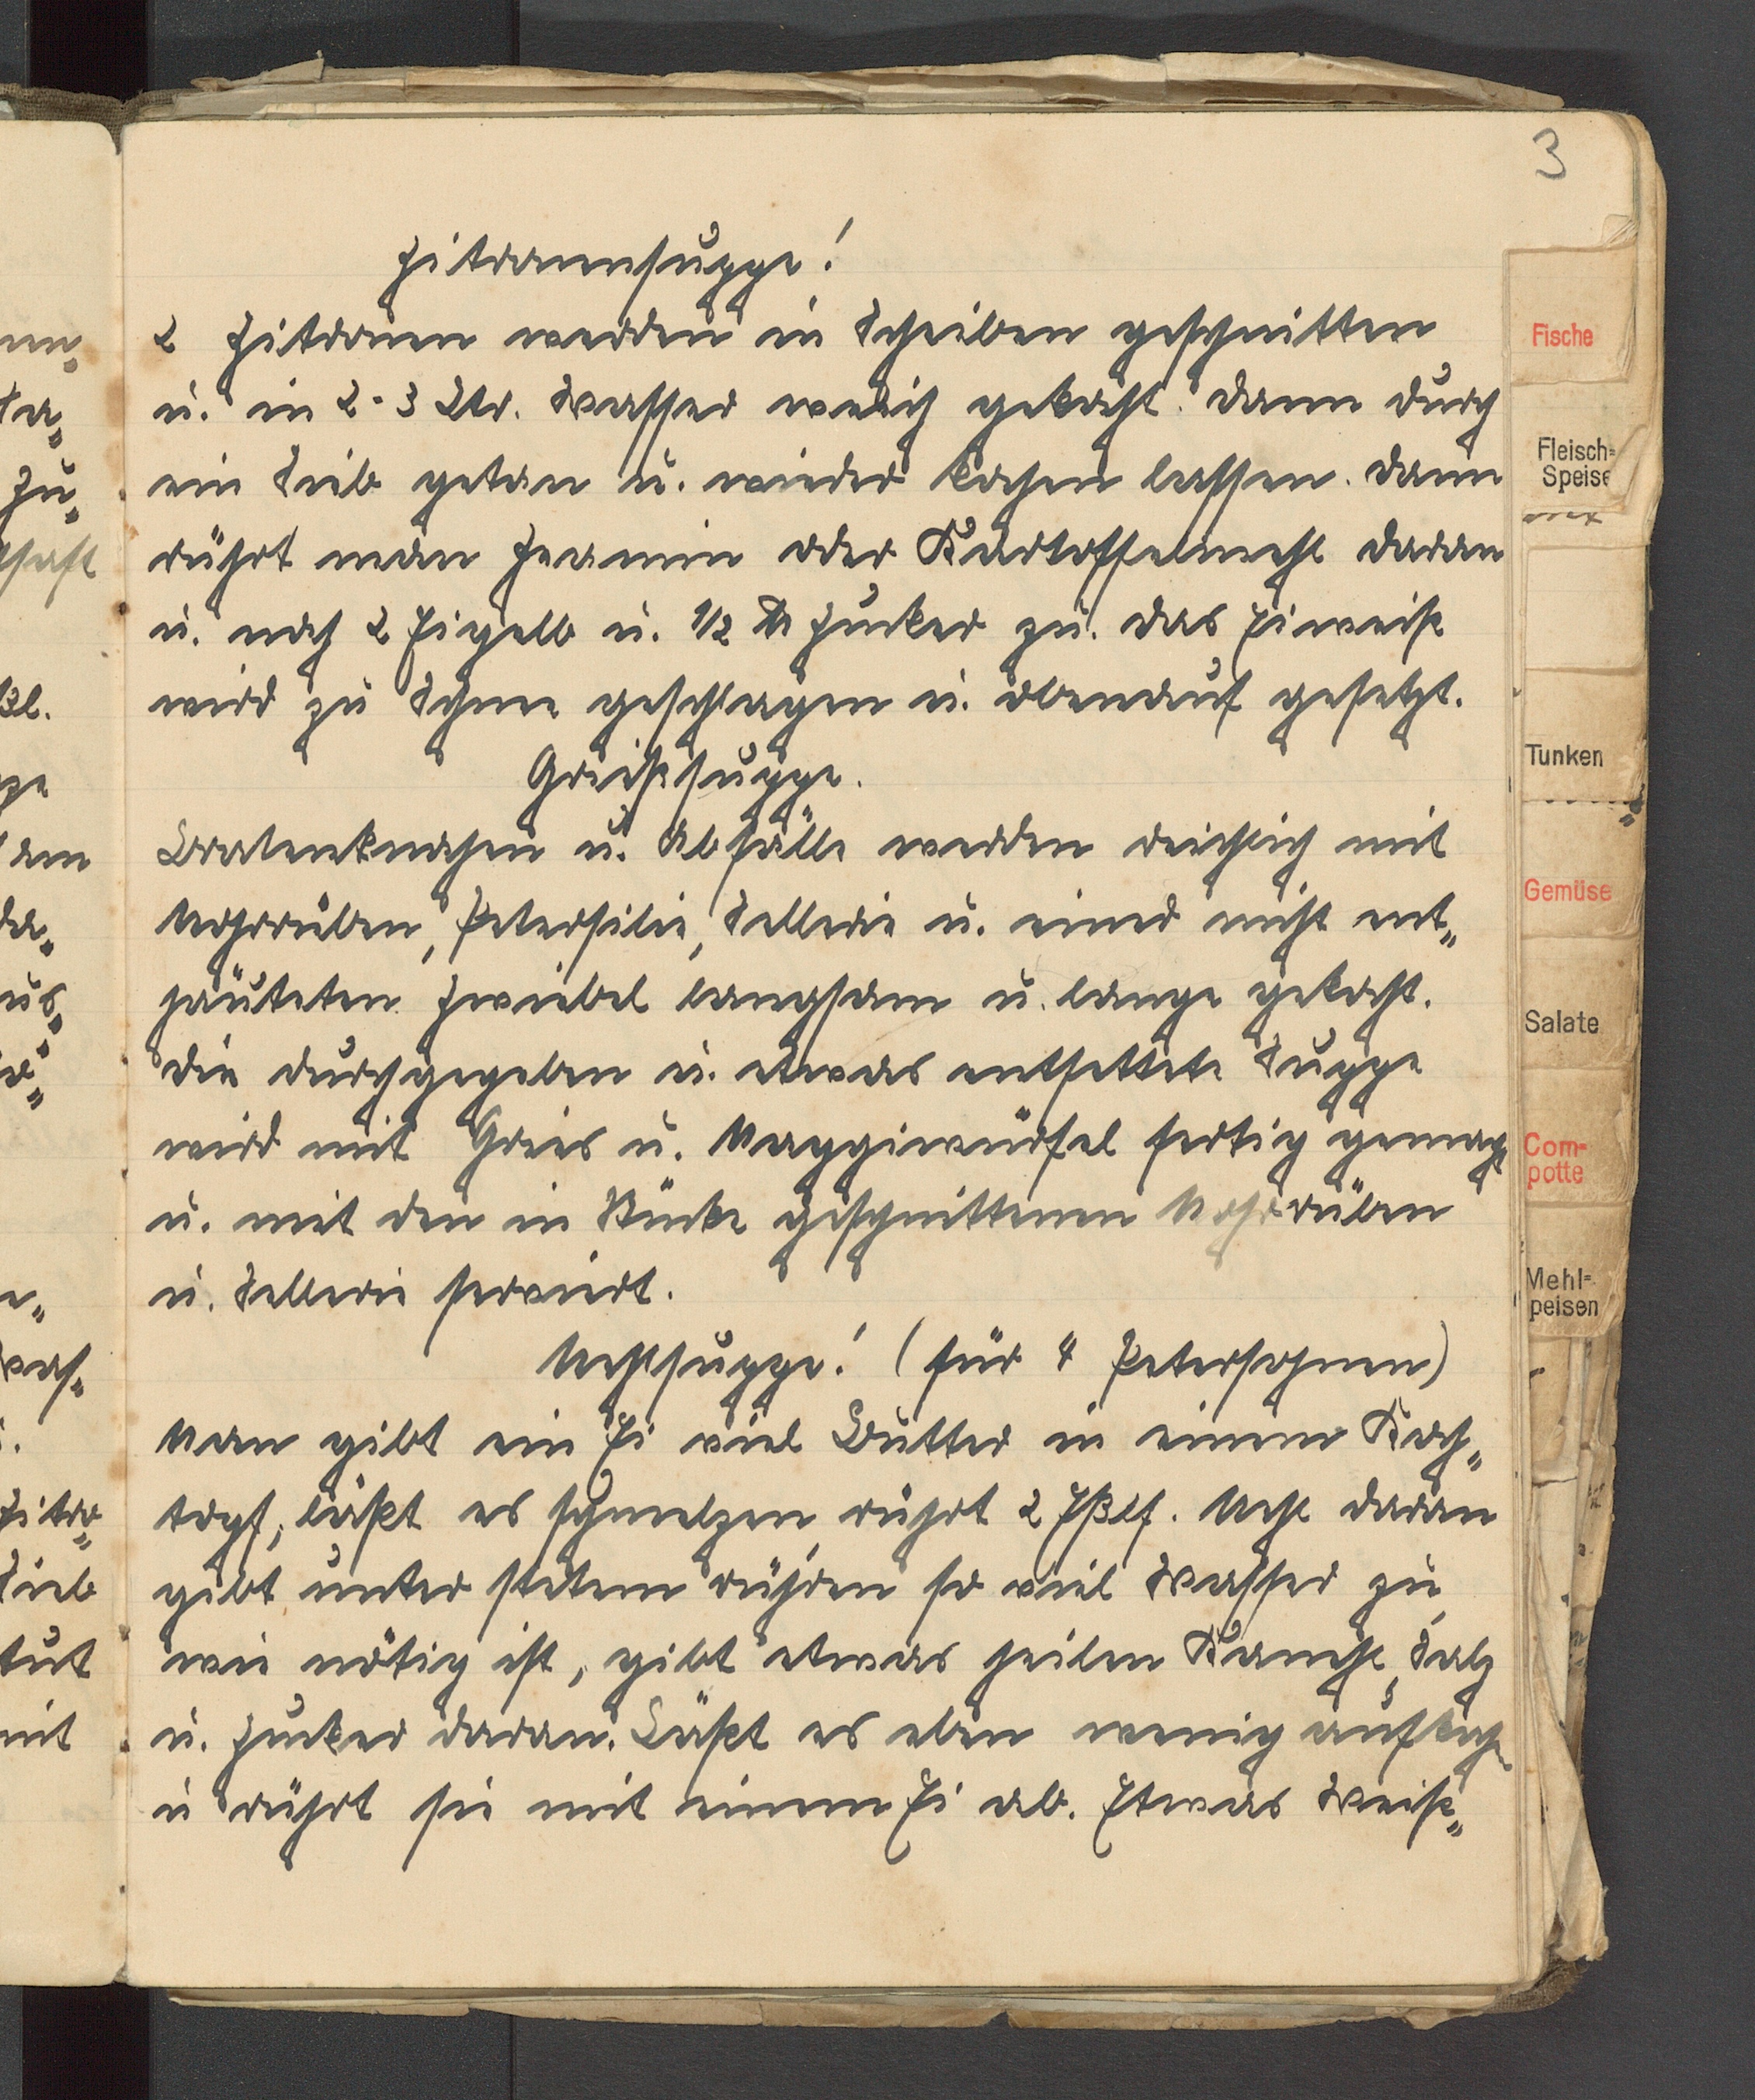 3
Zitronensuppe!
2 Zitronen werden in Scheiben geschnitten
u. in 2-3 Ltr. Wasser weich gekocht. Dann durch
ein Sieb getan u. wieder kochen lassen. Dann
rührt man oder Kartoffelmehl daran
u. noch 2 Eigelb u. 1/2 ℔ Zucker zu. Das Eiweiß
wird zu Schnee geschlagen u. obenauf gesetzt.
Grießsuppe.
Bratenknochen u. Abfälle werden reichlich mit
Mohrrüben, Petersilie, Sellerie u. einer nicht ent„
häuteten Zwiebel langsam u. lange gekocht.
Die durchgegeben u. etwas entfettete Suppe
wird mit Gries u. Maggiwürfel fertig gemach
u. mit den in Stücke geschnittenen Mohrrüben
u. Sellerie serviert.
Mehlsuppe! (für 4 Petersohnen)
Man gibt ein Ei viel Butter in einem Koch„
topf, läßt es schmelzen, rührt 2 Eßlf. Mehl daran
gibt unter stetem rühren so viel Wasser zu,
wie nötig ist, gibt etwas heilen Kanehl, Salz
u. Zucker daran. Läßt es eben wenig aufkoch
u rührt sie mit einem Ei ab. Etwas Weiß„
Fische
Fleisch=
Speise
Tunken
Gemüse
Salate
Com-
potte
Mehl=
peisen